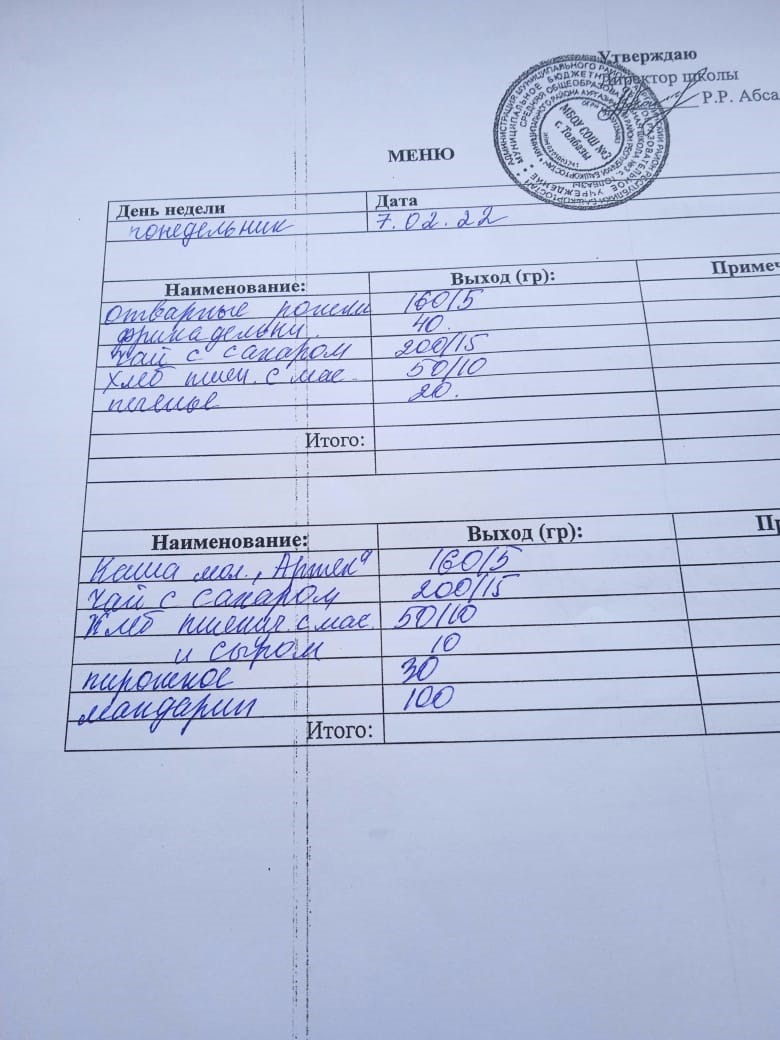 Утверждаю
Директор школы
Р.Р. Абса
МБОУ СОШ №2
с. Толбазы
МЕНЮ
День недели Дата
понедельник 7.02.22
Наименование: Выход (гр): Примеч
отварные рожки 160/5
фрикадельки. 40.
чай с сахаром 200/15
хлеб пшен. с мас. 50/10
печенье 20.
Итого:
Наименование: Выход (гр): Пр
Каша мол. "Артек" 160/5
чай с сахаром 200/15
Хлеб пшенич. с мас. 50/10
и сыром 10
пирожное 30
мандарин 100
Итого: